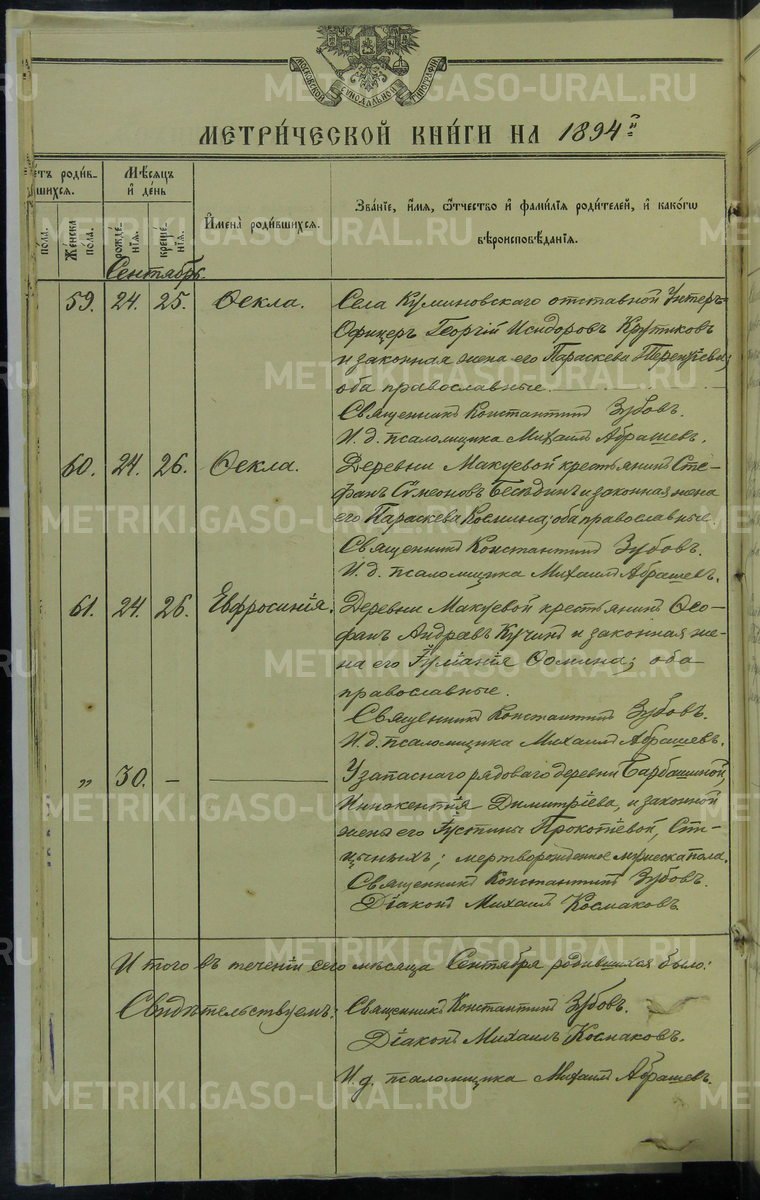 МОСКОВСКОЙ СѴНОДАЛЬНОЙ ТИПОГРАФІИ
МЕТРИ́ЧЕСКОЙ КНИ́ГИ НА 1894й
е́тъ роди́в-
шихся.
Мѣ́сяцъ
и҆ де́нь
пола.
Же́нска
по́ла.
рожде́-
нїѧ.
креще́-
нїѧ.
И҆мена̀ роди́вшихся.
Зва́нїе, и҆́мя, ѻ҆́тчество и҆ фами́лїя роди́телей, и҆ како́гѡ
вѣроисповѣ́данїя.
Сентябрь
59. 24. 25. Ѳекла. Села Куминовскаго отставной Унтеръ-
Офицеръ Георгій Исидоровъ Крутиковъ
и законная жена его Параскева Терентіева;
оба православные.
Священникъ Константинъ Зубовъ.
И. д. псаломщика Михаилъ Абрашевъ.
60. 24. 26. Ѳекла. Деревни Макуевой крестьянинъ Сте-
фанъ Сѵмеоновъ Бесѣдинъ и законная жена
его Параскева Космина; оба православные.
Священникъ Константинъ Зубовъ.
И. д. псаломщика Михаилъ Абрашевъ.
61. 24. 26. Евфросинія. Деревни Макуевой крестьянинъ Ѳео-
фанъ Андреевъ Кучинъ и законная же-
на его Іуліанія Ѳомина; оба
православные.
Священникъ Константинъ Зубовъ.
И. д. псаломщика Михаилъ Абрашевъ.
„ 30. — У запаснаго рядоваго деревни Барбашиной,
Иннокентія Димитріева, и законной
жены его Іустины Прокопіевой, Спи-
цыныхъ; мертворожденное мужеска пола.
Священникъ Константинъ Зубовъ.
Діаконъ Михаилъ Космаковъ.
Итого въ теченіи сего мѣсяца Сентября родившихся было:
Свидѣтельствуемъ: Священникъ Константинъ Зубовъ.
Діаконъ Михаилъ Космаковъ.
И. д. псаломщика Михаилъ Абрашевъ.
METRIKI.GASO-URAL.RU